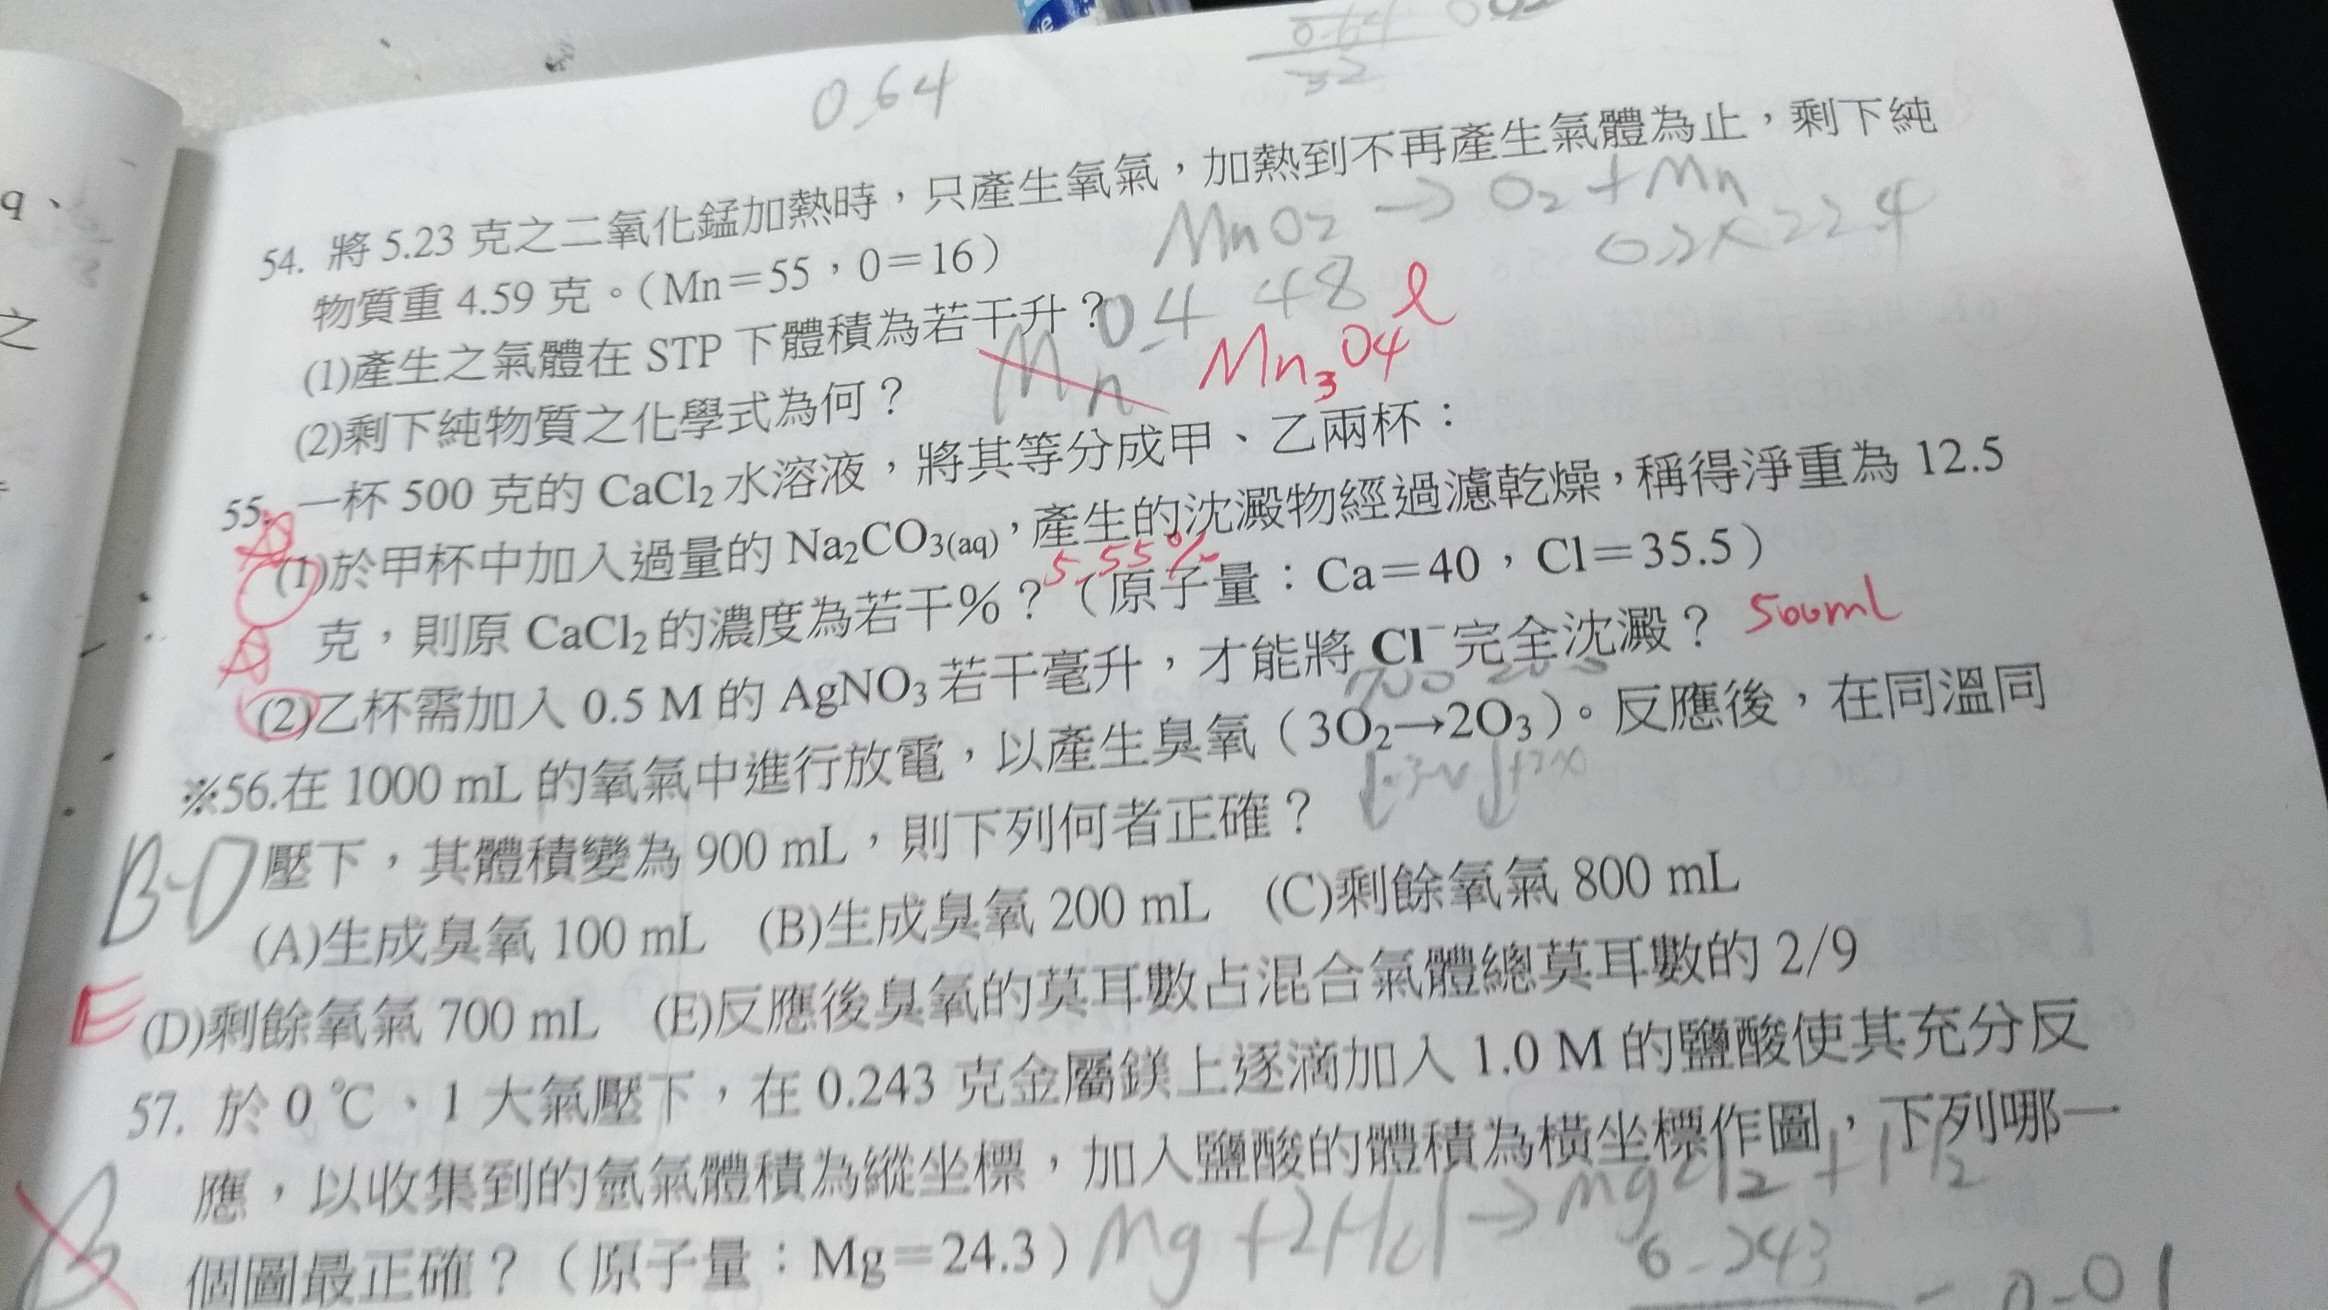 0.64
0.64
32
54. 將 5.23 克之二氧化錳加熱時，只產生氧氣，加熱到不再產生氣體為止，剩下純
MnO2 → O2 + Mn
物質重 4.59 克。（Mn＝55，O＝16）
0.2×22.4
(1)產生之氣體在 STP 下體積為若干升？0.448 l
(2)剩下純物質之化學式為何？ Mn Mn3O4
55. 一杯 500 克的 CaCl2 水溶液，將其等分成甲、乙兩杯：
(1)於甲杯中加入過量的 Na2CO3(aq)，產生的沈澱物經過濾乾燥，稱得淨重為 12.5
克，則原 CaCl2 的濃度為若干%？5.55%（原子量：Ca＝40，Cl＝35.5）
(2)乙杯需加入 0.5 M 的 AgNO3 若干毫升，才能將 Cl⁻完全沈澱？ 500ml
700 200
※56.在 1000 mL 的氧氣中進行放電，以產生臭氧（3O2→2O3）。反應後，在同溫同
壓下，其體積變為 900 mL，則下列何者正確？
B D
(A)生成臭氧 100 mL (B)生成臭氧 200 mL (C)剩餘氧氣 800 mL
E
(D)剩餘氧氣 700 mL (E)反應後臭氧的莫耳數占混合氣體總莫耳數的 2/9
57. 於 0 ℃、1 大氣壓下，在 0.243 克金屬鎂上逐滴加入 1.0 M 的鹽酸使其充分反
應，以收集到的氫氣體積為縱坐標，加入鹽酸的體積為橫坐標作圖，下列哪一
個圖最正確？（原子量：Mg＝24.3）
Mg + 2HCl → MgCl2 + H2
0.243
= 0.01